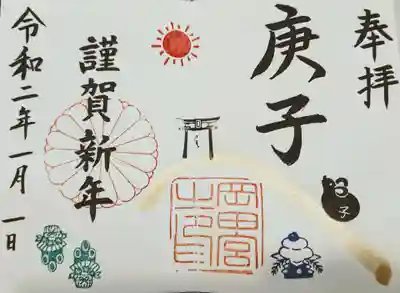 奉拝
庚子
子
謹賀新年
令和二年一月一日
岡田宮
之印